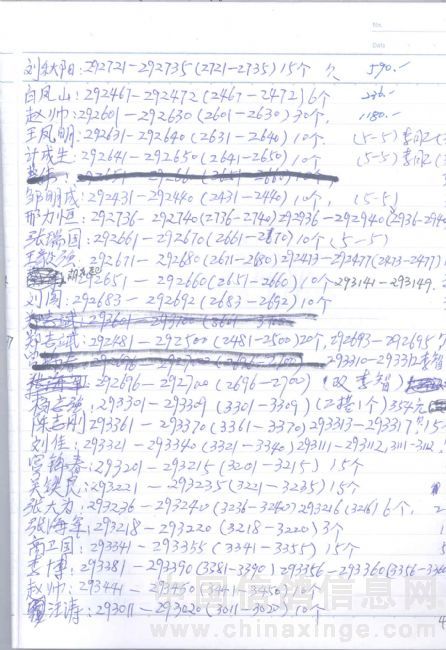 No.
Date
刘秋阳:292721-292735(2721-2735)15个 欠 590.-
白凤山:292467-292472(2467-2472)6个 236.-
赵帅:292601-292630(2601-2630)30个, 1180.-
王凤明:292631-292640(2631-2640)10个.(5-5)
计成生:292641-292650(2641-2650)10个 (5-5)
邹明成:292431-292440(2431-2440)10个, (5-5)
邢力恒:292736-292740(2736-2740)292936-292940(2936-2940
张瑞国:292661-292670(2661-2670)10个(5-5)
王敬强:292671-292680(2671-2680)292473-292477(2473-2477)
292651-292660(2651-2660)10个.293141-293149.
刘阔:292683-292692(2683-2692)10个
郑吉斌:292481-292500(2481-2500)20个,292693-292695
293310-293312李智
292696-292700(2696-2700)(改 李智)
杨志强:293301-293309(3301-3309)(2搭1个)354元
陈志刚:293361-293370(3361-3370)293313-293317
刘佳:293321-293340(3321-3340)293111-293112,3111-3112.
宫锦春:293201-293215(3201-3215)15个
吴铁良:293221-293235(3221-3235)15个
张大为:293236-293240(3236-3240)293216(3216)6个,
张海军:293218-293220(3218-3220)3个
商卫国:293341-293355(3341-3355)15个
李博:293381-293390(3381-3390)293356-293360(3356-3360
赵帅:293441-293450(3441-3450)10个
汪涛:293011-293020(3011-3020)10个
中国信鸽信息网
www.chinaxinge.com